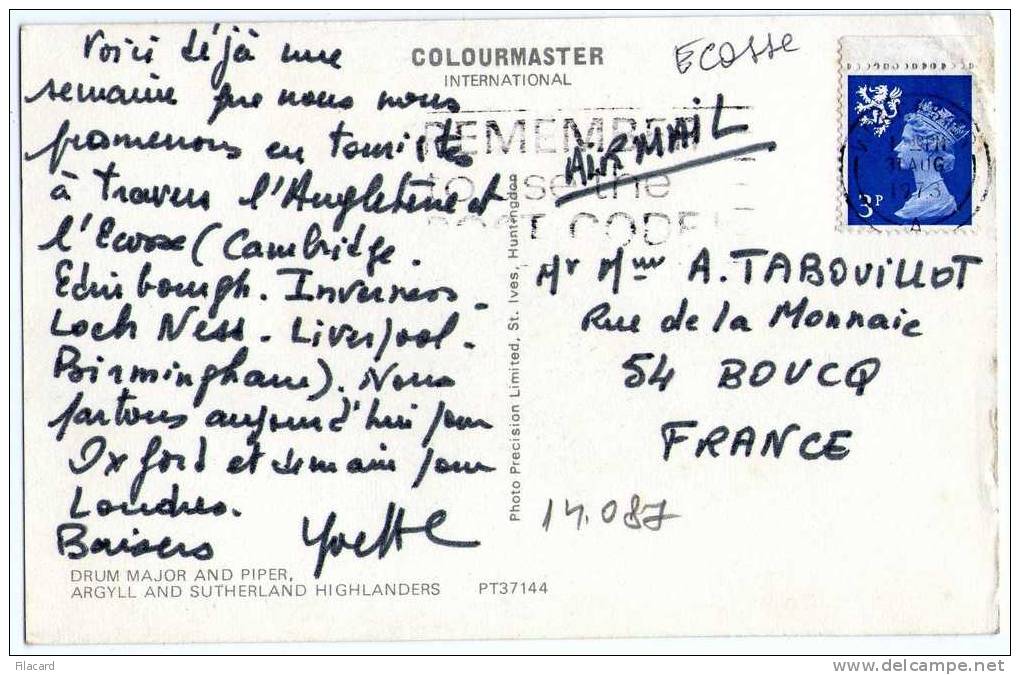 Voici déjà une
semaine que nous nous
promenons en touristes
à travers l'Angleterre et
l'Ecosse (Cambridge.
Edinbourgh. Inverness.
Loch Ness. Liverpool.
Birmingham). Nous
partons aujourd'hui pour
Oxford et demain pour
Londres.
Baisers Yvette
DRUM MAJOR AND PIPER,
ARGYLL AND SUTHERLAND HIGHLANDERS PT37144
COLOURMASTER
INTERNATIONAL
ECOSSE
REMEMBER
to use the
POST CODE
AIR MAIL
3P
AUG
1973
A
Photo Precision Limited, St. Ives, Huntingdon
Mr Mme A. TABOUILLOT
Rue de la Monnaie
54 BOUCQ
FRANCE
14.087
filacard
http://www.delcampe.net